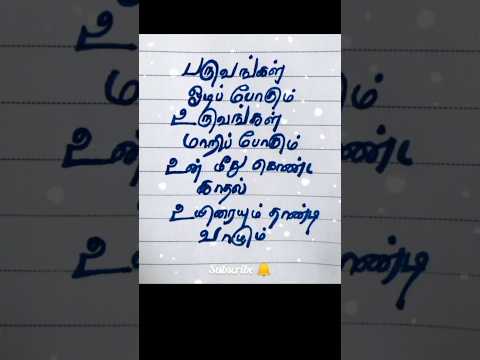 பருவங்கள்
ஓடிப் போகும்
உருவங்கள்
மாறிப் போகும்
உன் மீது கொண்ட
காதல்
உயிரையும் தாண்டி
வாழும்
Subscribe